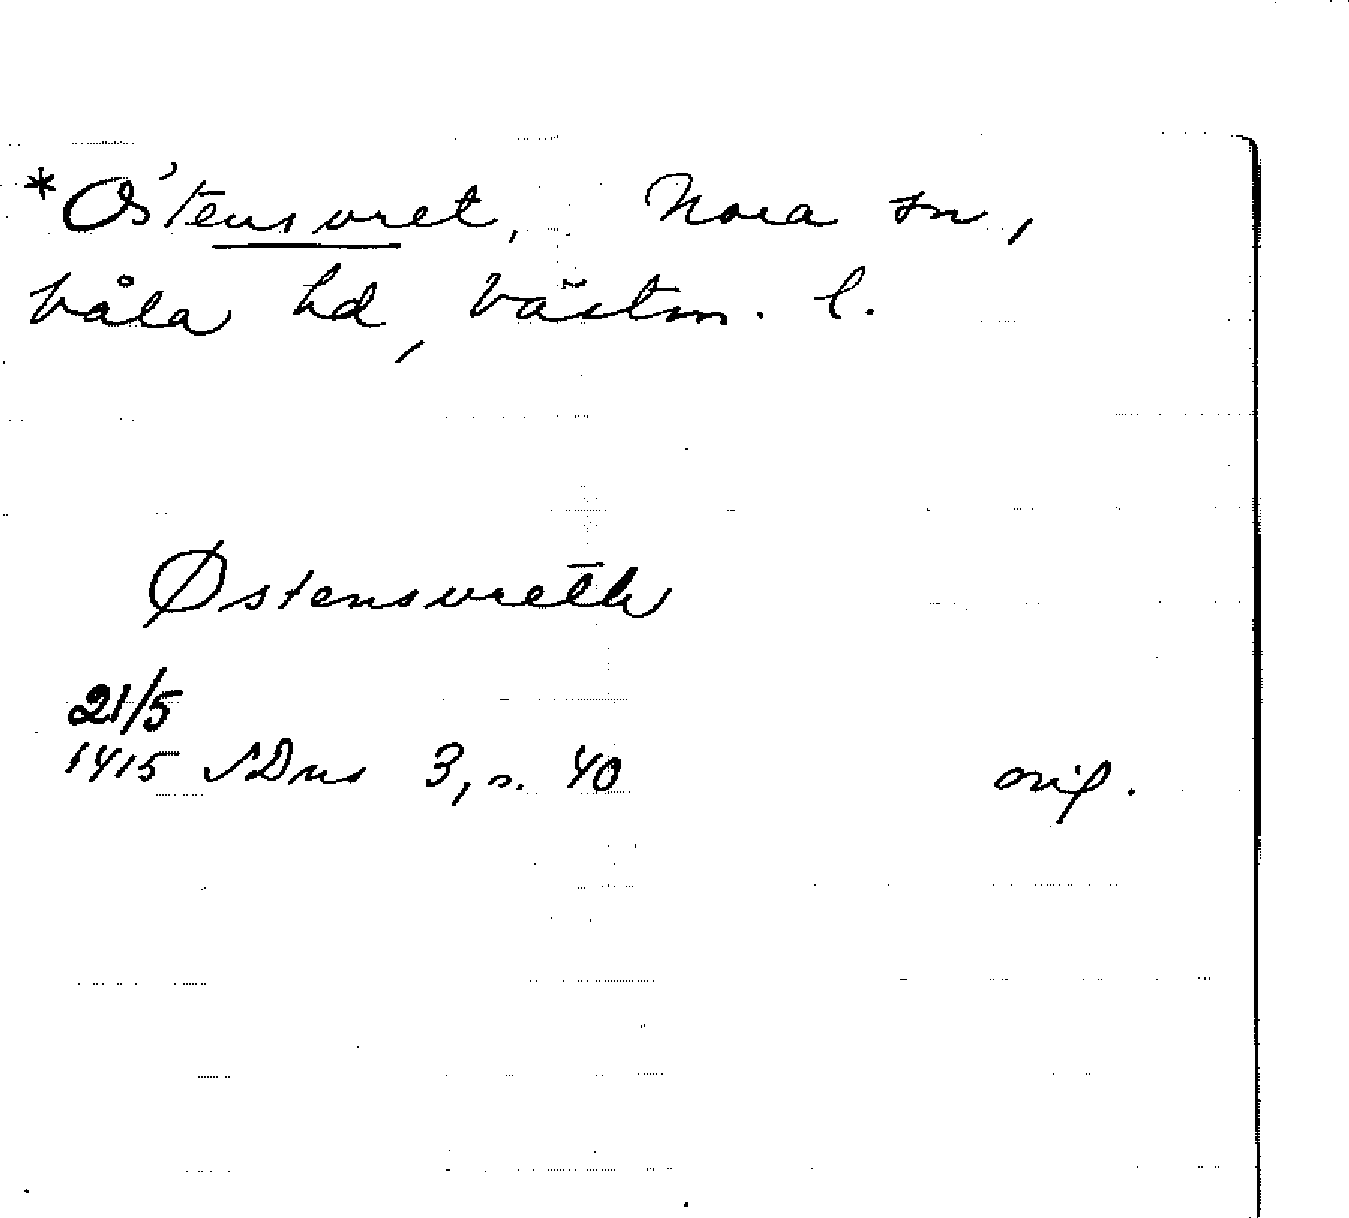 *Östensvret, Nora sn,
Våla hd, Västm. l.
Østensvreth
21/5
1415 SDns 3, s. 40 orig.